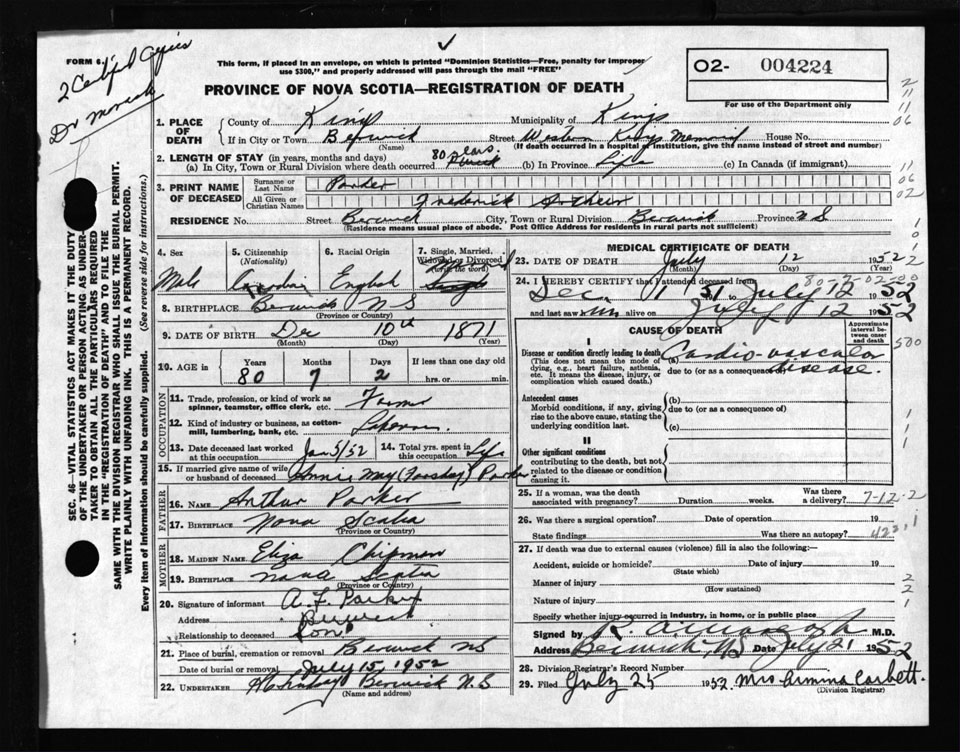 FORM 6.
2 Certified Copies
Dr
This form, if placed in an envelope, on which is printed "Dominion Statistics—Free, penalty for improper
use $300," and properly addressed will pass through the mail "FREE"
PROVINCE OF NOVA SCOTIA—REGISTRATION OF DEATH
O2- 004224
For use of the Department only
1. PLACE OF DEATH
County of Kings Municipality of Kings
If in City or Town Berwick Street Western Kings Memorial House No.
(Name) (If death occurred in a hospital or institution, give the name instead of street and number)
2. LENGTH OF STAY (in years, months and days)
(a) In City, Town or Rural Division where death occurred 80 years. Berwick (b) In Province Life (c) In Canada (if immigrant)
3. PRINT NAME OF DECEASED
Surname or Last Name Parker
All Given or Christian Names Frederick Arthur
RESIDENCE No. Street Berwick City, Town or Rural Division Berwick Province N S
(Residence means usual place of abode. Post Office Address for residents in rural parts not sufficient)
4. Sex Male
5. Citizenship (Nationality) Canadian
6. Racial Origin English
7. Single, Married, Widowed or Divorced (write the word) Single
8. BIRTHPLACE Berwick N S
(Province or Country)
9. DATE OF BIRTH Dec 10th 1871
(Month) (Day) (Year)
10. AGE in Years Months Days If less than one day old
80 7 2 hrs. or min.
OCCUPATION
11. Trade, profession, or kind of work as spinner, teamster, office clerk, etc.
12. Kind of industry or business, as cotton-mill, lumbering, bank, etc.
13. Date deceased last worked at this occupation Jan 5/52
14. Total yrs. spent in this occupation Life
15. If married give name of wife or husband of deceased Annie May Parker
FATHER
16. NAME Arthur Parker
17. BIRTHPLACE Nova Scotia
(Province or Country)
MOTHER
18. MAIDEN NAME Eliza Chipman
19. BIRTHPLACE Nova Scotia
(Province or Country)
20. Signature of informant A. F. Parker
Address Berwick
Relationship to deceased Son
21. Place of burial, cremation or removal Berwick NS
Date of burial or removal July 15, 1952
22. UNDERTAKER Berwick N.S
(Name and address)
MEDICAL CERTIFICATE OF DEATH
23. DATE OF DEATH July 12 1952
(Month) (Day) (Year)
24. I HEREBY CERTIFY that I attended deceased from
Dec 1 1951 to July 12 1952
and last saw him alive on July 12 1952
CAUSE OF DEATH
Approximate interval between onset and death
I
Disease or condition directly leading to death (a) Cardio-vascular disease.
(This does not mean the mode of dying, e.g., heart failure, asthenia, etc. It means the disease, injury, or complication which caused death.)
due to (or as a consequence of)
Antecedent causes
Morbid conditions, if any, giving rise to the above cause, stating the underlying condition last.
(b)
due to (or as a consequence of)
(c)
II
Other significant conditions
contributing to the death, but not related to the disease or condition causing it.
25. If a woman, was the death associated with pregnancy? Duration weeks. Was there a delivery? 7-12-2
26. Was there a surgical operation? Date of operation 19
State findings Was there an autopsy?
27. If death was due to external causes (violence) fill in also the following:—
Accident, suicide or homicide? Date of injury 19
(State which)
Manner of injury
(How sustained)
Nature of injury
Specify whether injury occurred in industry, in home, or in public place
Signed by M.D.
Address Berwick, NS Date July 21 1952
28. Division Registrar's Record Number
29. Filed July 25 1952 Mrs Armina Corbett.
(Division Registrar)
SEC. 46—VITAL STATISTICS ACT MAKES IT THE DUTY
OF THE UNDERTAKER OR PERSON ACTING AS UNDER-
TAKER TO OBTAIN ALL THE PARTICULARS REQUIRED
IN THE "REGISTRATION OF DEATH" AND TO FILE THE
SAME WITH THE DIVISION REGISTRAR WHO SHALL ISSUE THE BURIAL PERMIT.
WRITE PLAINLY WITH UNFADING INK. THIS IS A PERMANENT RECORD.
Every item of Information should be carefully supplied. (See reverse side for instructions.)